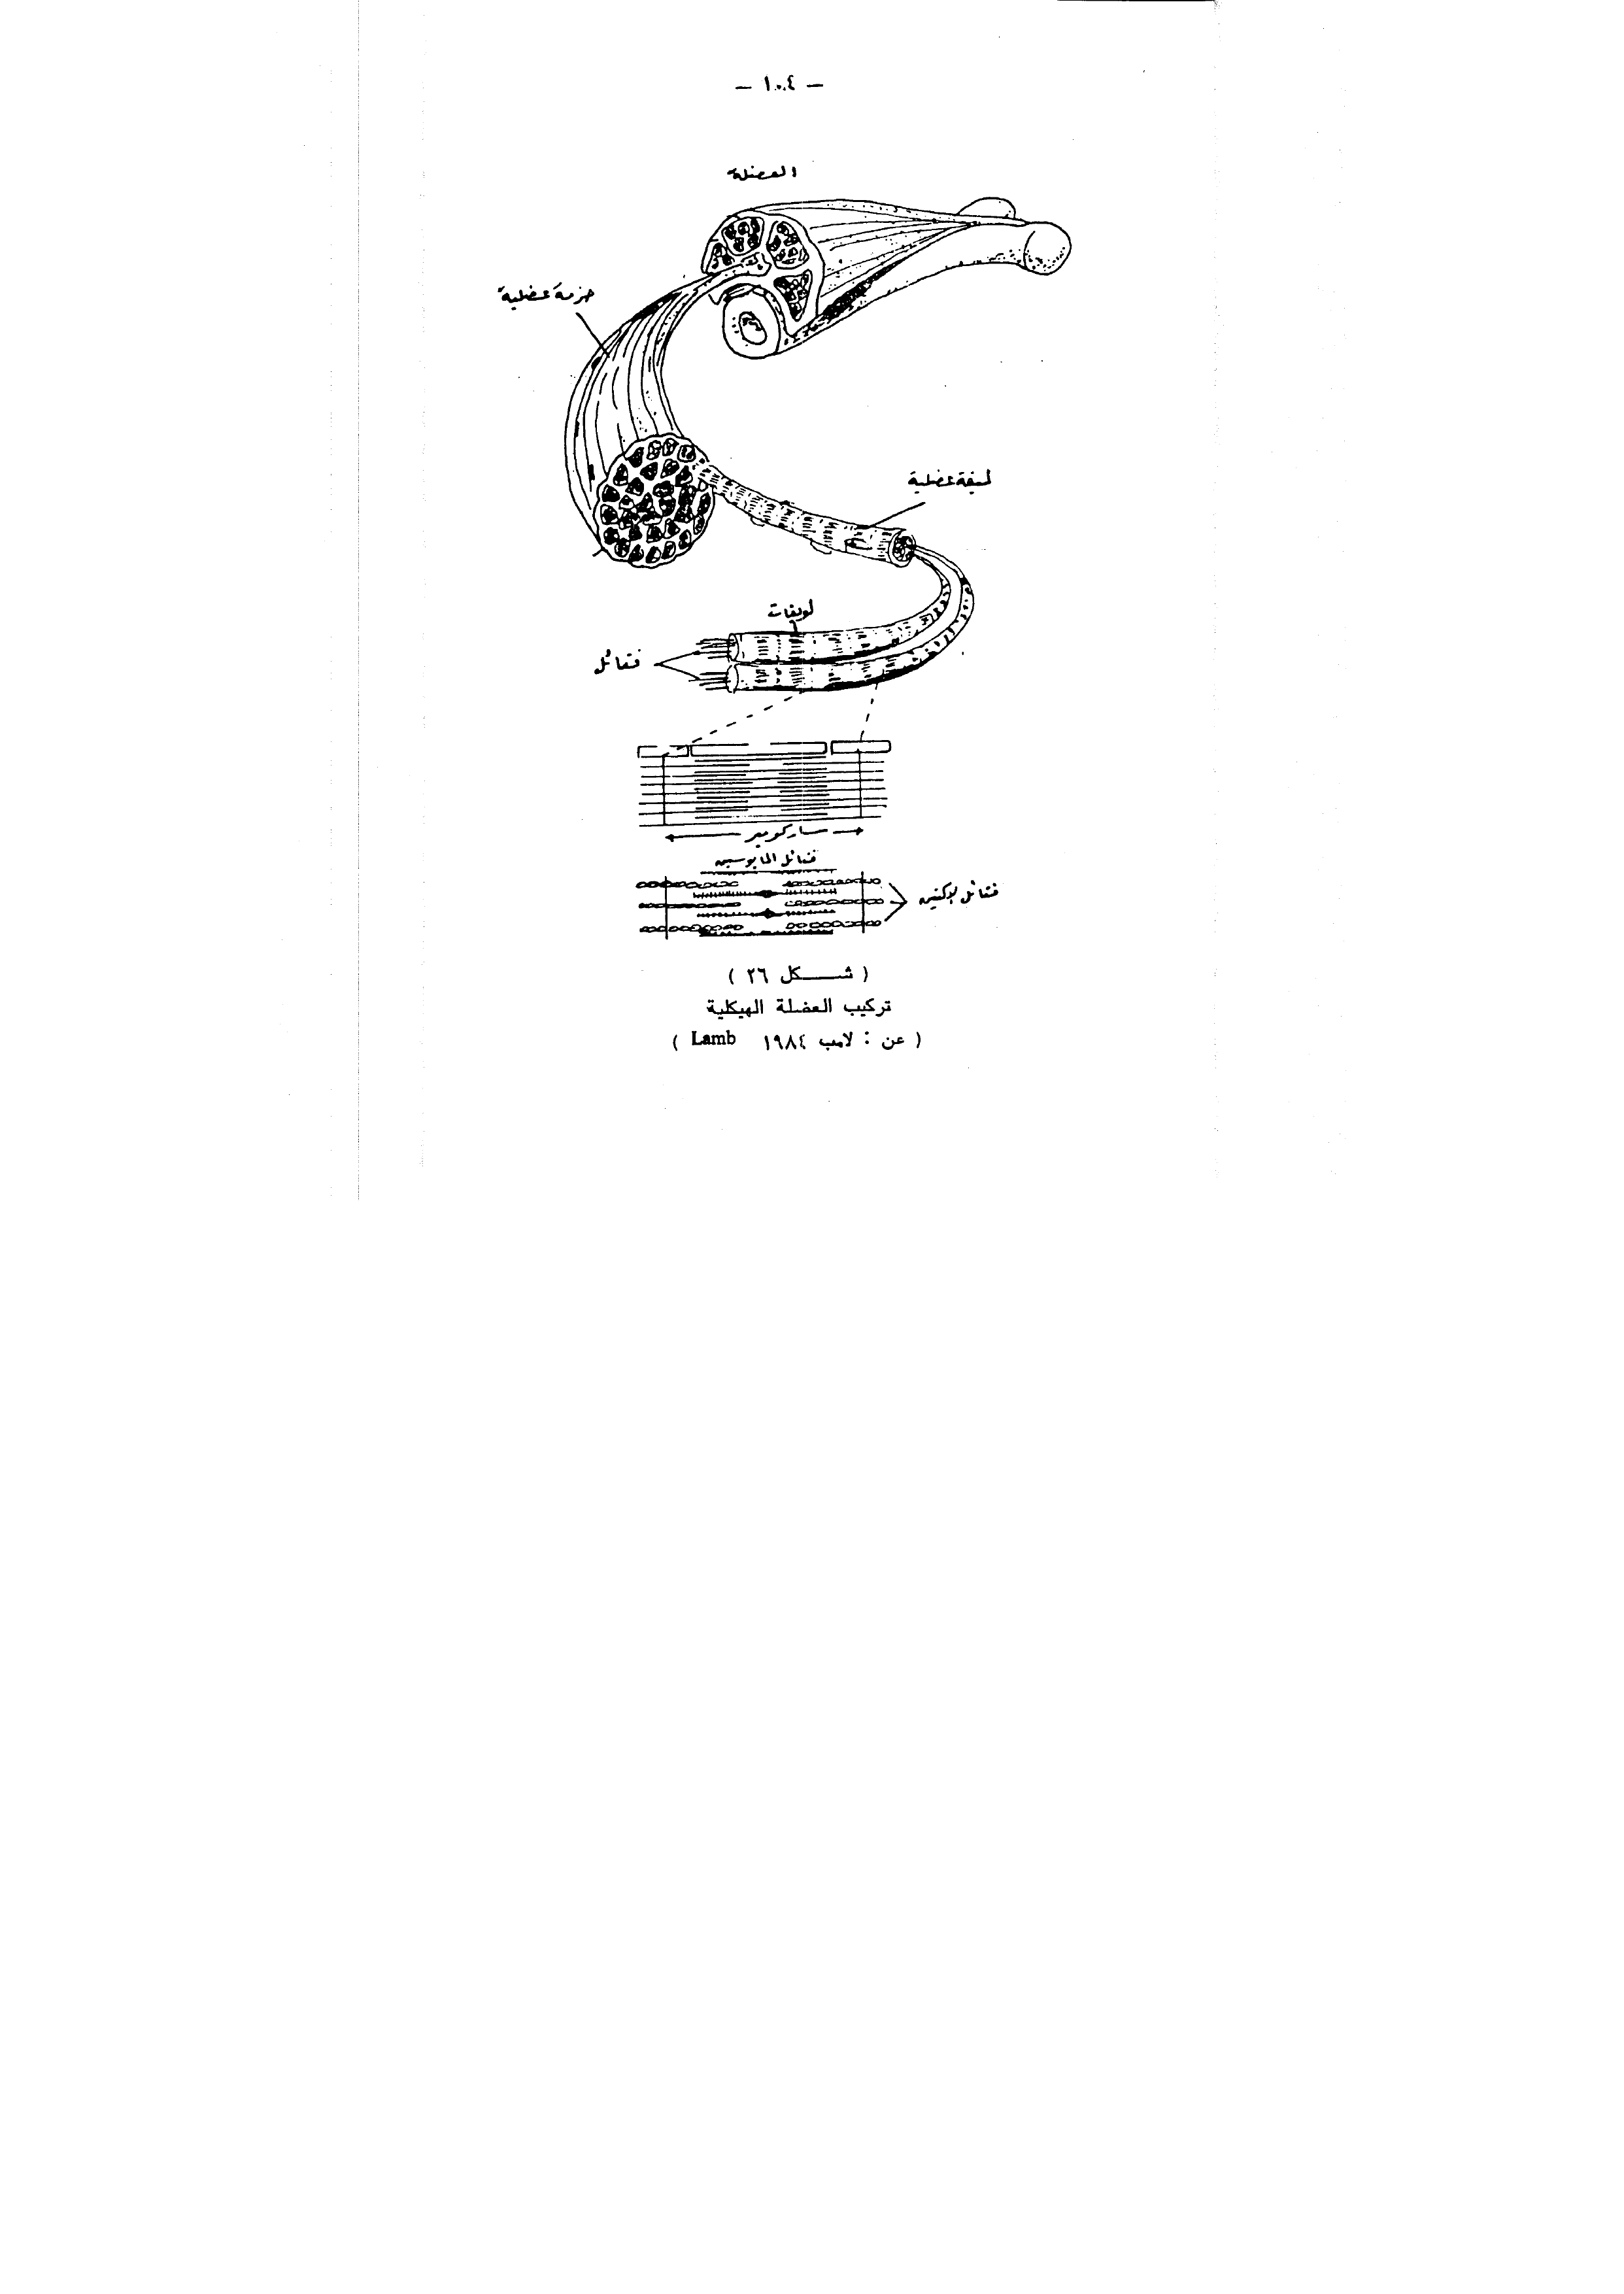 — ١٠٤ —
العضلة
حزمة عضلية
ليفة عضلية
لويفات
فتائل
ساركومير
فتائل المايوسين
فتائل الاكتين
( شـــكل ٢٦ )
تركيب العضلة الهيكلية
( عن : لامب ١٩٨٤ Lamb )